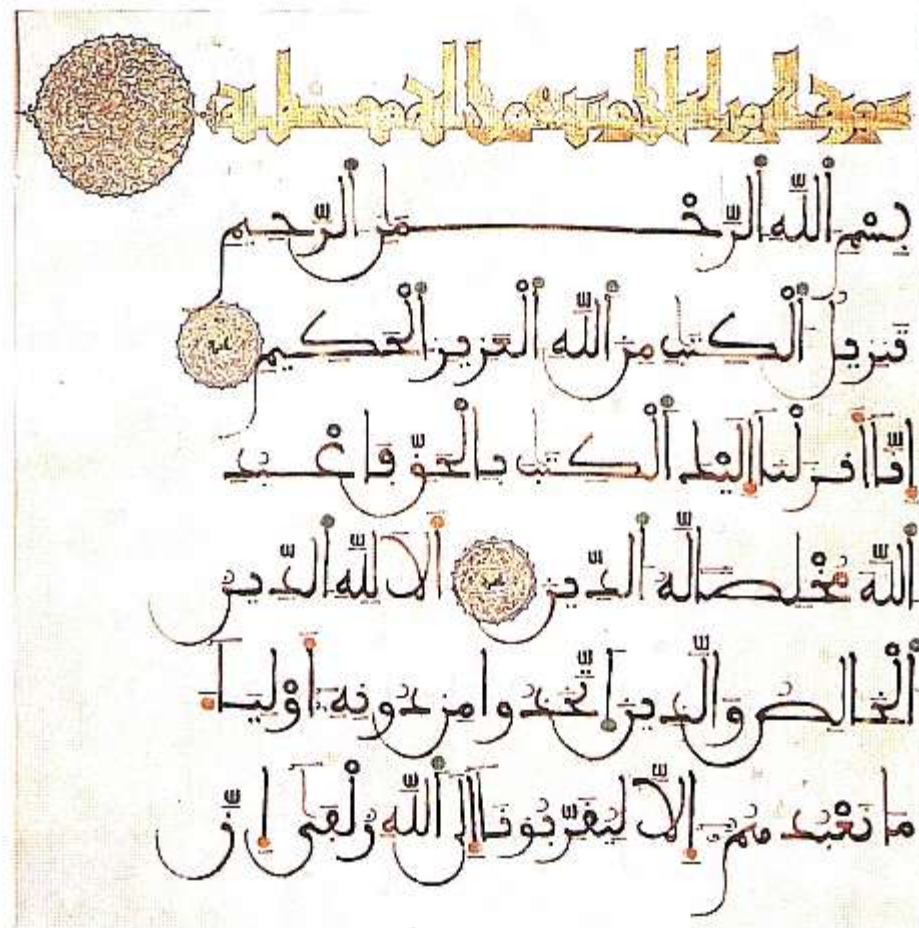 سورة الزمر
بِسْمِ اللَّهِ الرَّحْمَنِ الرَّحِيمِ
تَنزِيلُ الْكِتَٰبِ مِنَ اللَّهِ الْعَزِيزِ الْحَكِيمِ
إِنَّا أَنزَلْنَا إِلَيْكَ الْكِتَٰبَ بِالْحَقِّ فَاعْبُدِ
اللَّهَ مُخْلِصًا لَّهُ الدِّينَ أَلَا لِلَّهِ الدِّينُ
الْخَالِصُ وَالَّذِينَ اتَّخَذُوا مِن دُونِهِ أَوْلِيَاءَ
مَا نَعْبُدُهُمْ إِلَّا لِيُقَرِّبُونَا إِلَى اللَّهِ زُلْفَىٰ إِنَّ